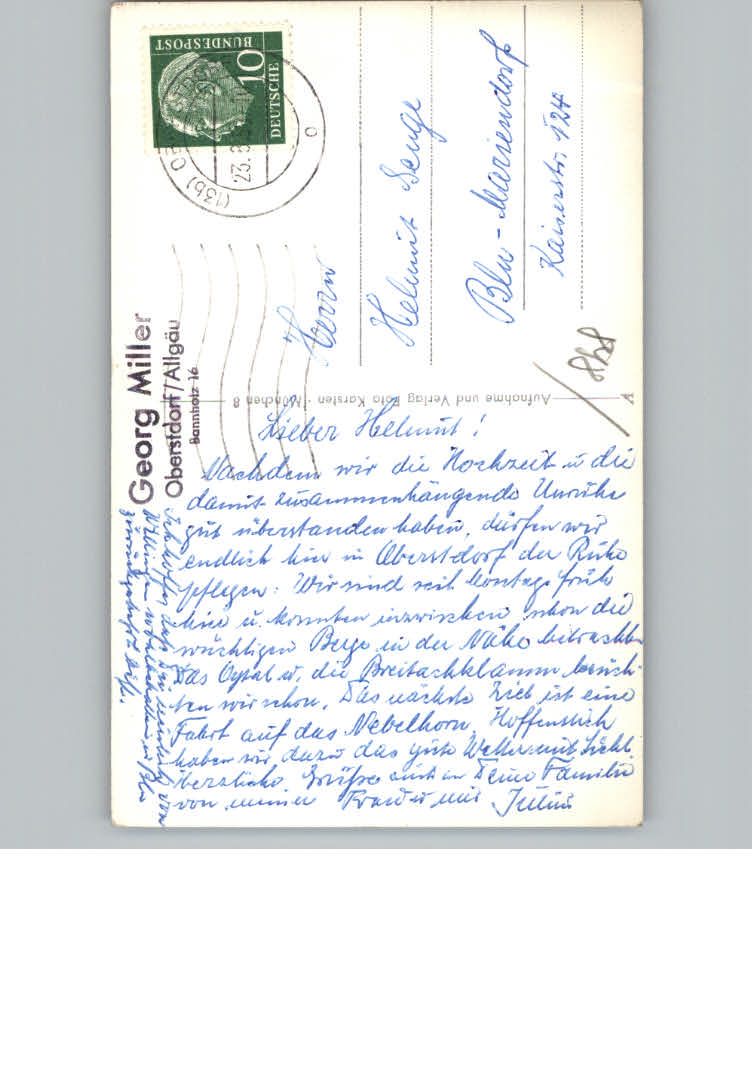 DEUTSCHE
BUNDESPOST
10
(13b) OB
23.
Georg Miller
Oberstdorf/Allgäu
Bannholz 16
Herrn
Helmut Senge
Bln-Mariendorf
Kaiserstr. 124
Aufnahme und Verlag Foto Karsten · München 8
A
Lieber Helmut!
Nachdem wir die Hochzeit u die
damit zusammenhängende Unruhe
gut überstanden haben, dürfen wir
endlich hier in Oberstdorf der Ruhe
pflegen. Wir sind seit Montags früh
hier u. konnten inzwischen schon die
wuchtigen Berge in der Nähe betrachten
Das Oytal u. die Breitachklamm besuch-
ten wir schon. Das nächste Ziel ist eine
Fahrt auf das Nebelhorn. Hoffentlich
haben wir dazu das gute Wetter mit Sicht.
Herzliche Grüße auch an Deine Familie
von meiner Frau u mir Julius
Ich hoffe, daß Du von